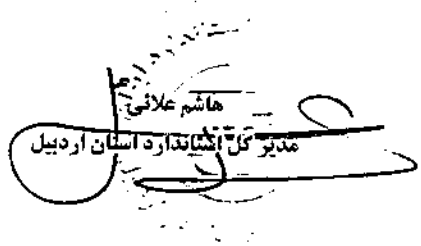 هاشم علائی
مدیر کل استاندارد استان اردبیل